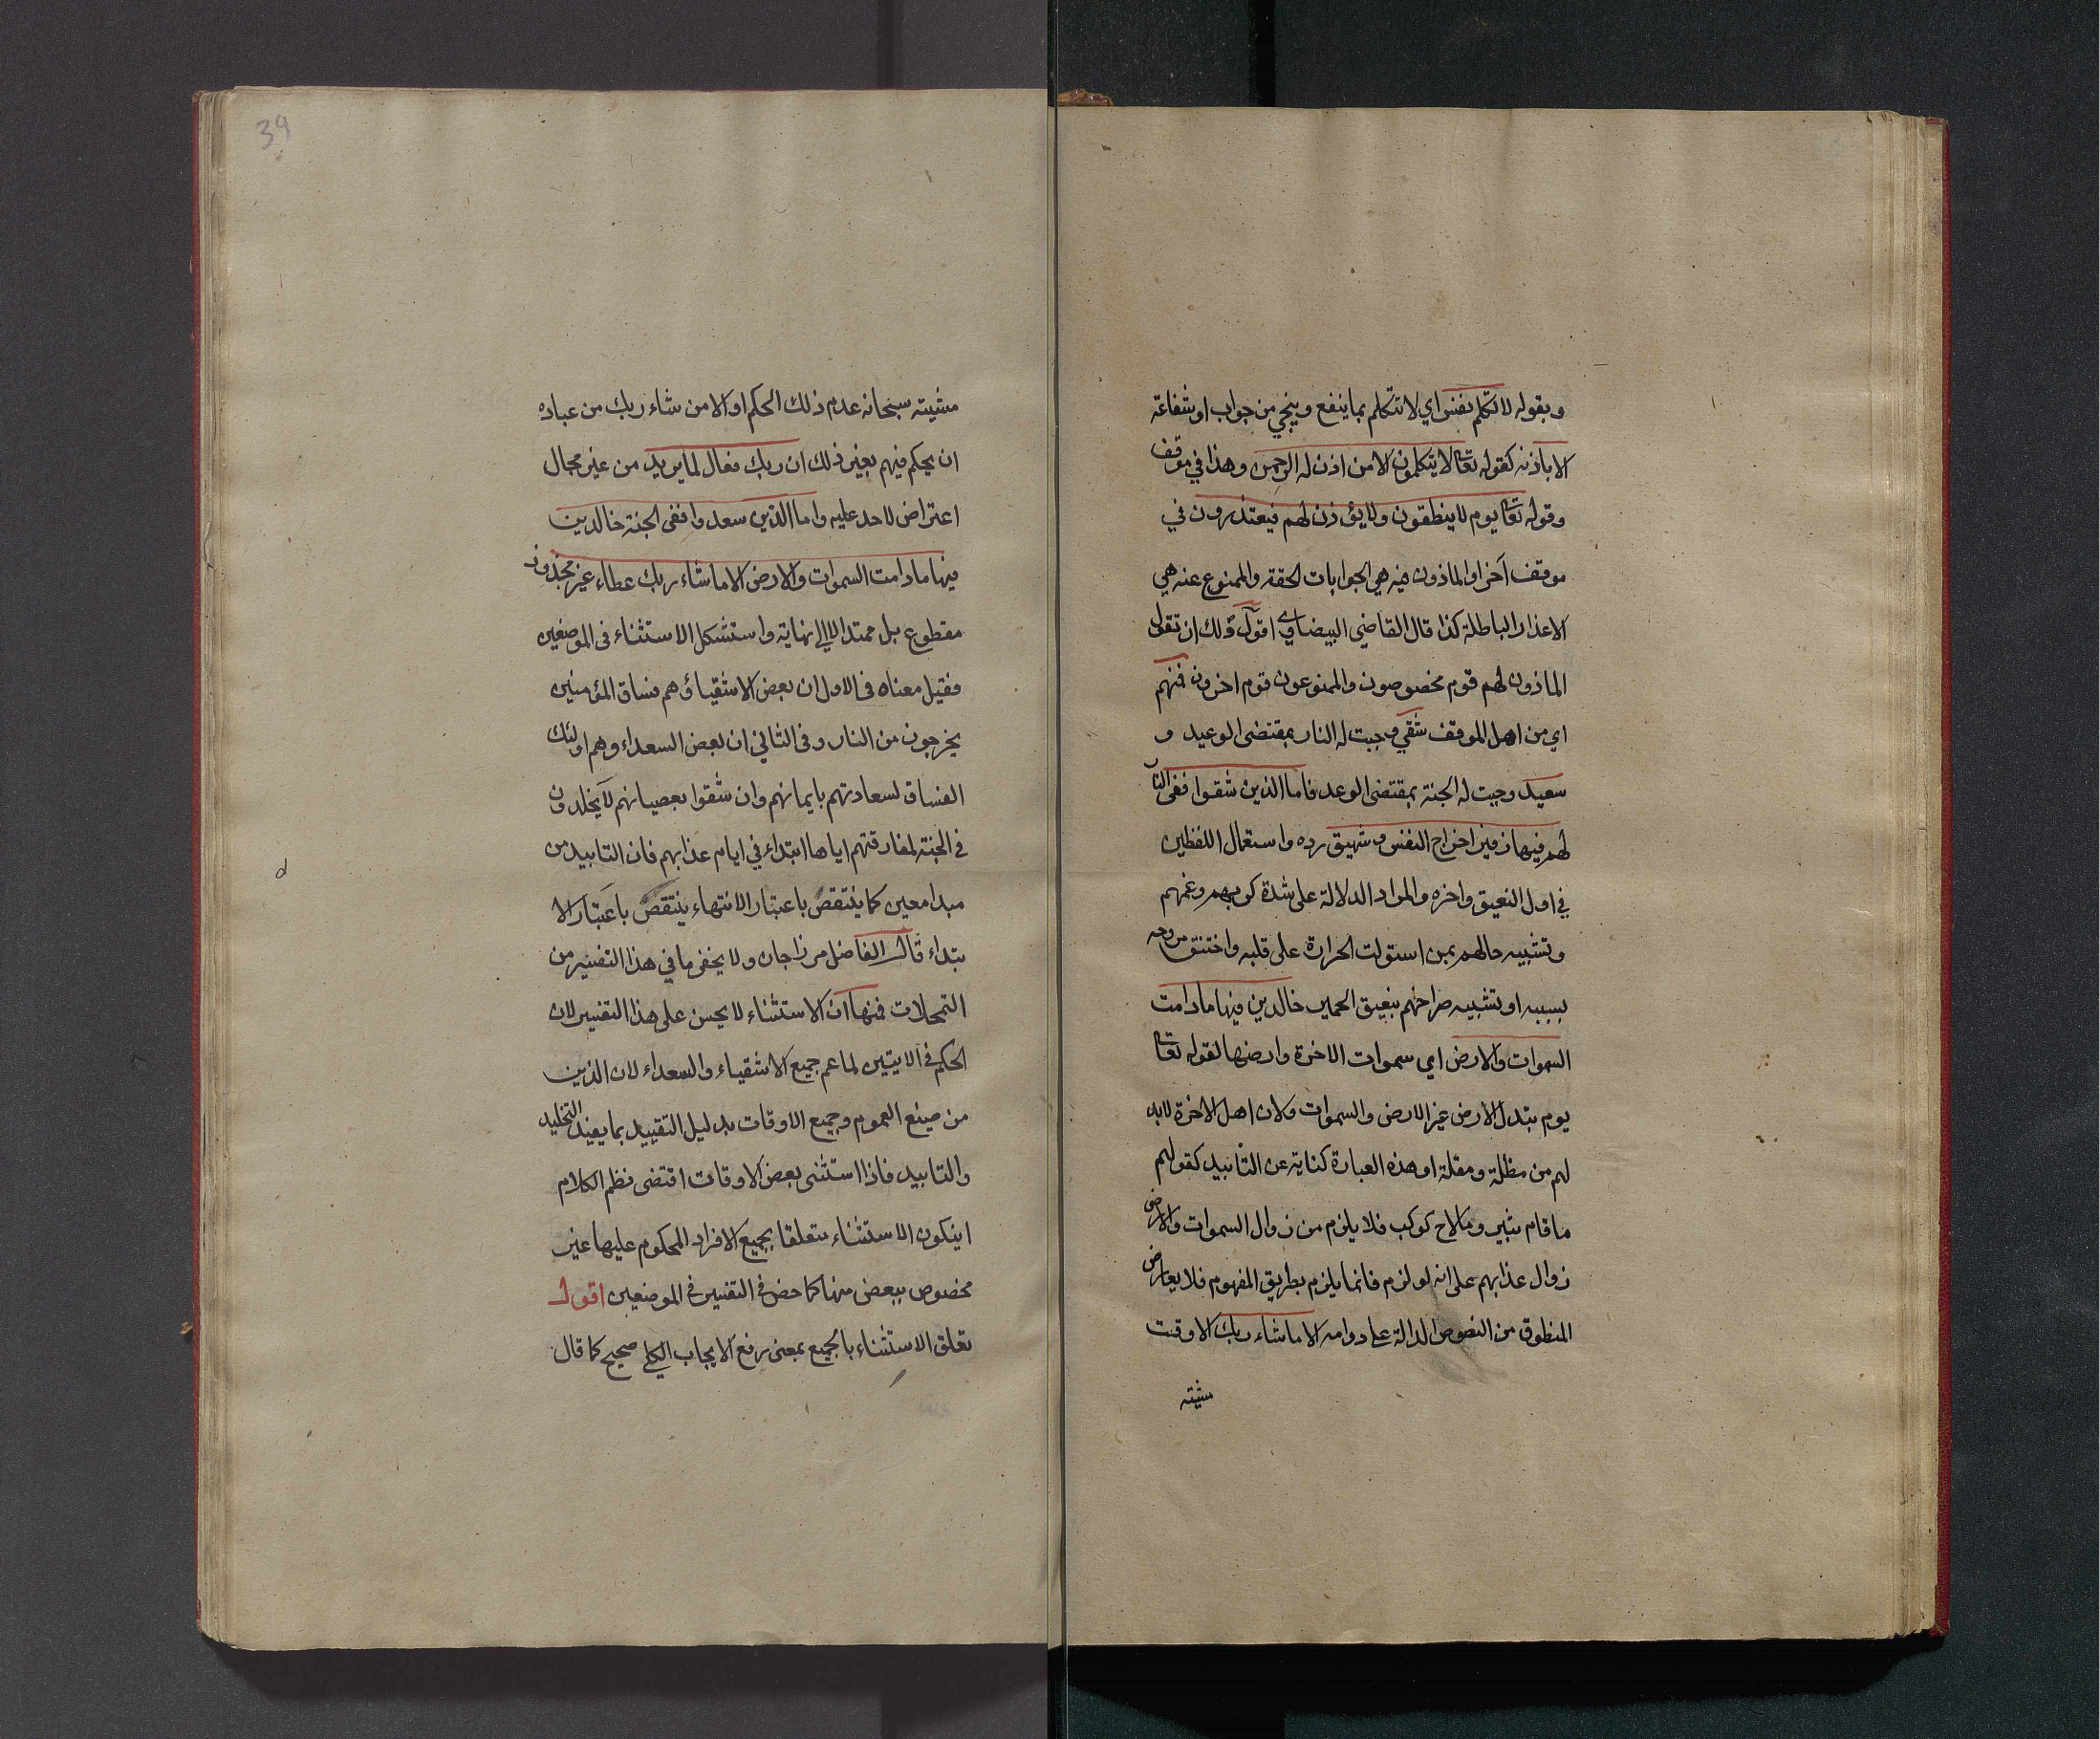 وبقوله لا تكلم نفس اي لا تتكلم بما ينفع وينجي من جواب او شفاعة
الا باذنه كقوله تعا لا يتكلمون الا من اذن له الرحمن وهذا في موقف
وقوله تعا يوم لا ينطقون ولا يؤذن لهم فيعتذرون في
موقف آخر او الماذون فيه هي الجوابات الحقة والممنوع عنه هي
الاعذار الباطلة كذا قال القاضي البيضاوي اقول ولك ان تقول
الماذون لهم قوم مخصوصون والممنوعون قوم اخرون فمنهم
اي من اهل الموقف شقي وجبت له النار بمقتضى الوعيد و
سعيد وجبت له الجنة بمقتضى الوعد فاما الذين شقوا ففى النا
لهم فيها زفير اخراج النفس وشهيق رده واستعمال اللفظين
في اول النهيق واخره والمراد الدلالة على شدة كربهم وغمهم
وتشبيه حالهم بمن استولت الحرارة على قلبه واختنق روحه
بسببه او تشبيه صراخهم بنهيق الحمير خالدين فيها ما دامت
السموات والارض اي سموات الاخرة وارضها لقوله تعا
يوم تبدل الارض غير الارض والسموات ولان اهل الاخرة لابد
لهم من مظلة ومقلة او هذه العبارة كناية عن التابيد كقولهم
ما قام ثبير وما لاح كوكب فلا يلزم من زوال السموات والارض
زوال عذابهم على انه لو لزم فانما يلزم بطريق المفهوم فلا يعارض
المنطوق من النصوص الدالة على دوامه الا ما شاء ربك الا وقت
مشيته
39
مشيته سبحانه عدم ذلك الحكم او الا من شاء ربك من عباده
ان يحكم فيهم بغير ذلك ان ربك فعال لما يريد من غير مجال
اعتراض لاحد عليه واما الذين سعدوا ففى الجنة خالدين
فيها ما دامت السموات والارض الا ما شاء ربك عطاء غير مجذوذ
مقطوع بل ممتد الا الى نهاية واستشكل الاستثناء فى الموضعين
فقيل معناه فى الاول ان بعض الاشقياء وهم فساق المؤمنين
يخرجون من النار وفى الثاني ان بعض السعداء وهم اولئك
الفساق لسعادتهم بايمانهم وان شقوا بعصيانهم لا يخلدون
فى الجنة لمفارقتهم اياها ابتداء في ايام عذابهم فان التابيد من
مبدا معين كما ينتقض باعتبار الانتهاء ينتقض باعتبار الا
بتداء قال الفاضل مرزاجان ولا يخفى ما في هذا التفسير من
التمحلات فمنها ان الاستثناء لا يحسن على هذا التفسير لان
الحكم فى الايتين لما عم جميع الاشقياء والسعداء لان الذين
من صيغ العموم وجميع الاوقات بدليل التقييد بما يفيد التخليد
والتابيد فاذا استثنى بعض الاوقات اقتضى نظم الكلام
ان يكون الاستثناء متعلقا بجميع الافراد المحكوم عليها غير
مخصوص ببعض منها كما خص فى التفسير فى الموضعين اقول
تعلق الاستثناء بالجميع بمعنى رفع الايجاب الكلي صحيح كما قال